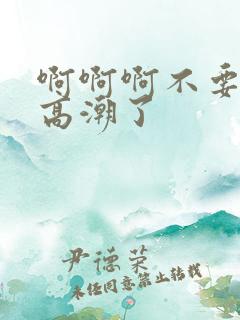 啊啊啊不要
高潮了
尹德荣
未经同意禁止转载